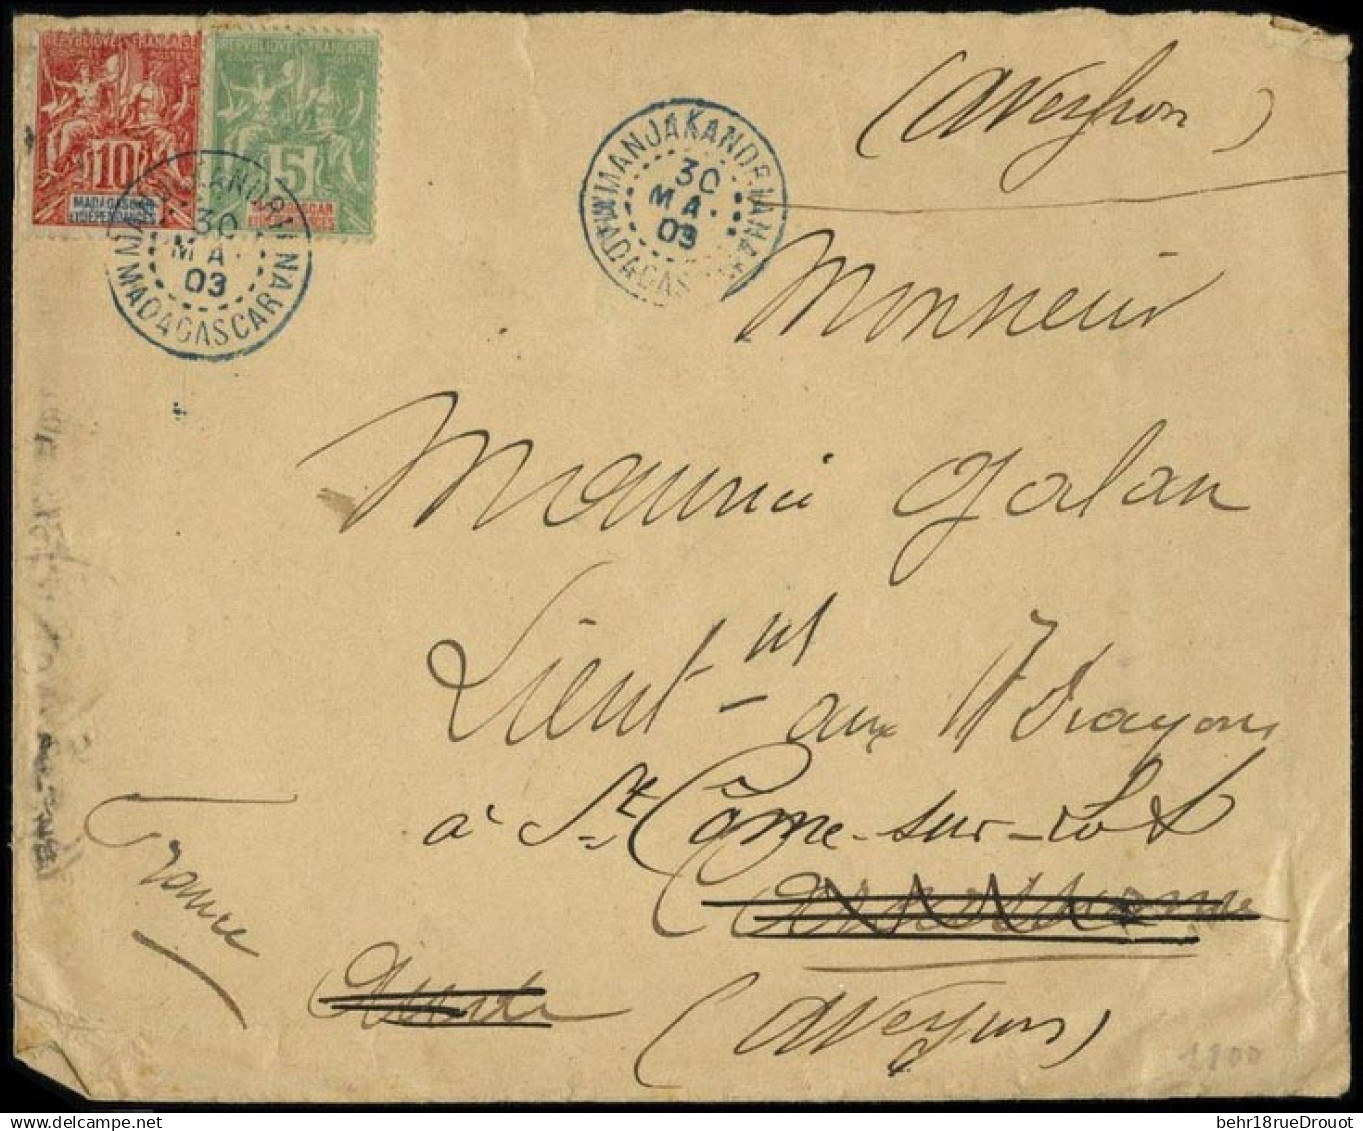 (Aveyron)
REPUBLIQUE FRANCAISE
COLONIES POSTES
10
MADAGASCAR
ET DEPENDANCES
REPUBLIQUE FRANCAISE
5
ET DEPENDANCES
MANJAKANDRIANA
30
MA
03
MADAGASCAR
MANJAKANDRIANA
30
MA
03
MADAGASCAR
Monsieur
Maurice Jalan
Lieut-nt aux 17 Dragons
à St Côme-sur-Lot
France
(Aveyron)
1100
behr18rueDrouot